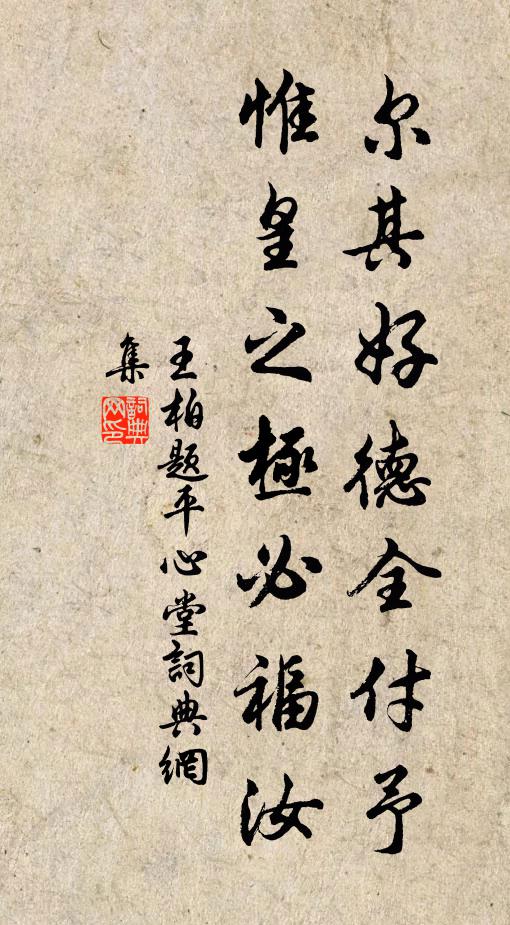 尔其好德全付予
惟皇之極必福汝
王柏题平心堂詞典網
集
詞典
网印